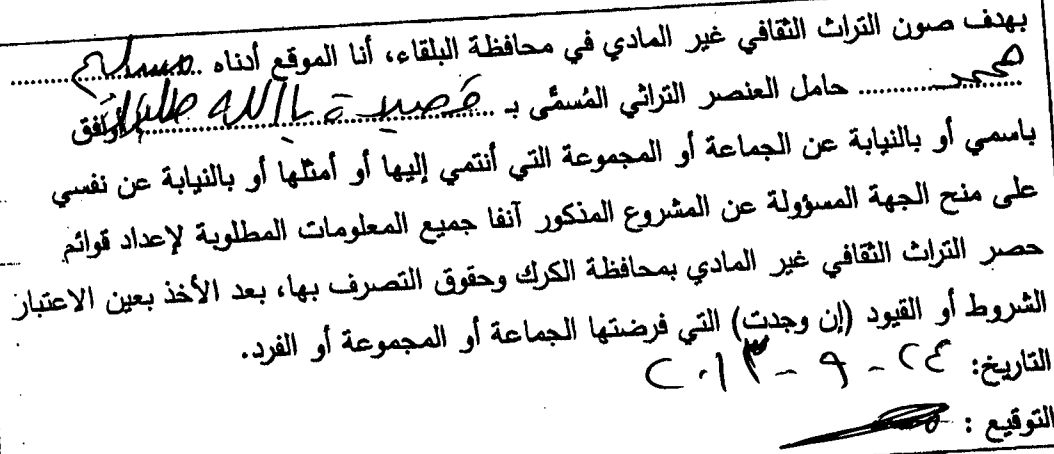 بهدف صون التراث الثقافي غير المادي في محافظة البلقاء، أنا الموقع أدناه
محمد حامل العنصر التراثي المُسمَّى بـ قصيدة يا الله طلبتك أوافق
باسمي أو بالنيابة عن الجماعة أو المجموعة التي أنتمي إليها أو أمثلها أو بالنيابة عن نفسي
على منح الجهة المسؤولة عن المشروع المذكور آنفا جميع المعلومات المطلوبة لإعداد قوائم
حصر التراث الثقافي غير المادي بمحافظة الكرك وحقوق التصرف بها، بعد الأخذ بعين الاعتبار
الشروط أو القيود (إن وجدت) التي فرضتها الجماعة أو المجموعة أو الفرد.
التاريخ: ٢٤ - ٩ - ٢٠١٣
التوقيع :